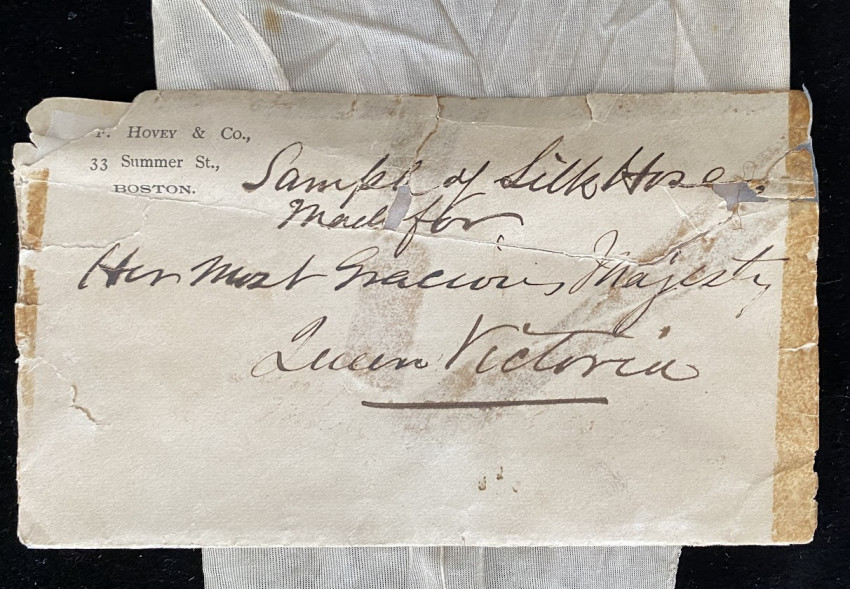 F. HOVEY & CO.,
33 Summer St.,
BOSTON.
Sample of Silk Hose
Made for
Her Most Gracious Majesty
Queen Victoria